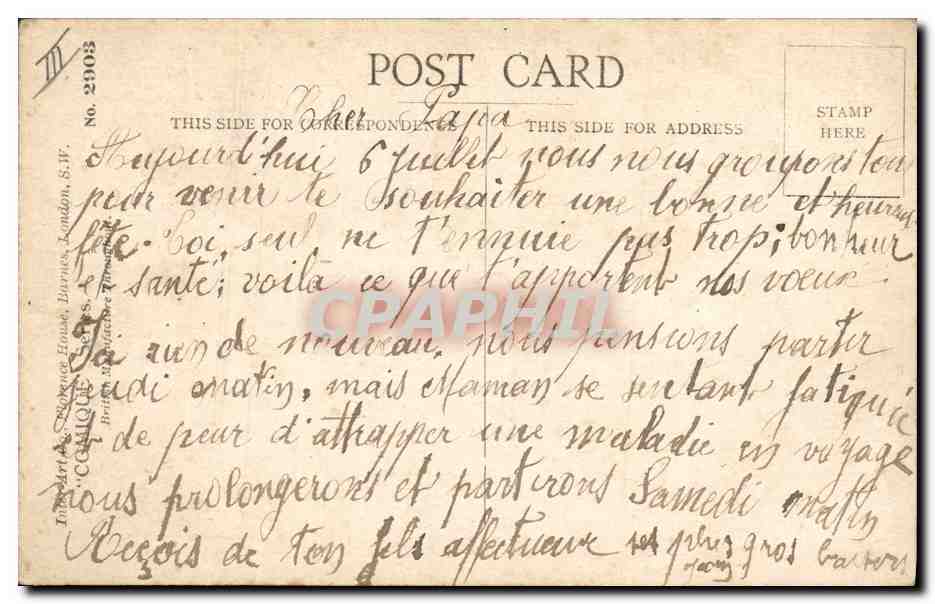 III
No. 2903
POST CARD
STAMP
HERE
THIS SIDE FOR CORRESPONDENCE
THIS SIDE FOR ADDRESS
Inter-Art Co., Florence House, Barnes, London, S.W.
"COMIQUE" Series.
British Manufacture Throughout
Cher Papa
Aujourd'hui 6 Juillet nous nous groupons tous
pour venir te souhaiter une bonne et heureuse
fête. Toi, seul ne t'ennuie pas trop; bonheur
et santé; voilà ce que t'apportent nos voeux.
Ici rien de nouveau, nous pensions partir
jeudi matin, mais Maman se sentant fatiguée
et de peur d'attrapper une maladie en voyage
nous prolongerons et partirons Samedi matin
Reçois de ton fils affectueux ses plus gros baisers
CPAPHIL